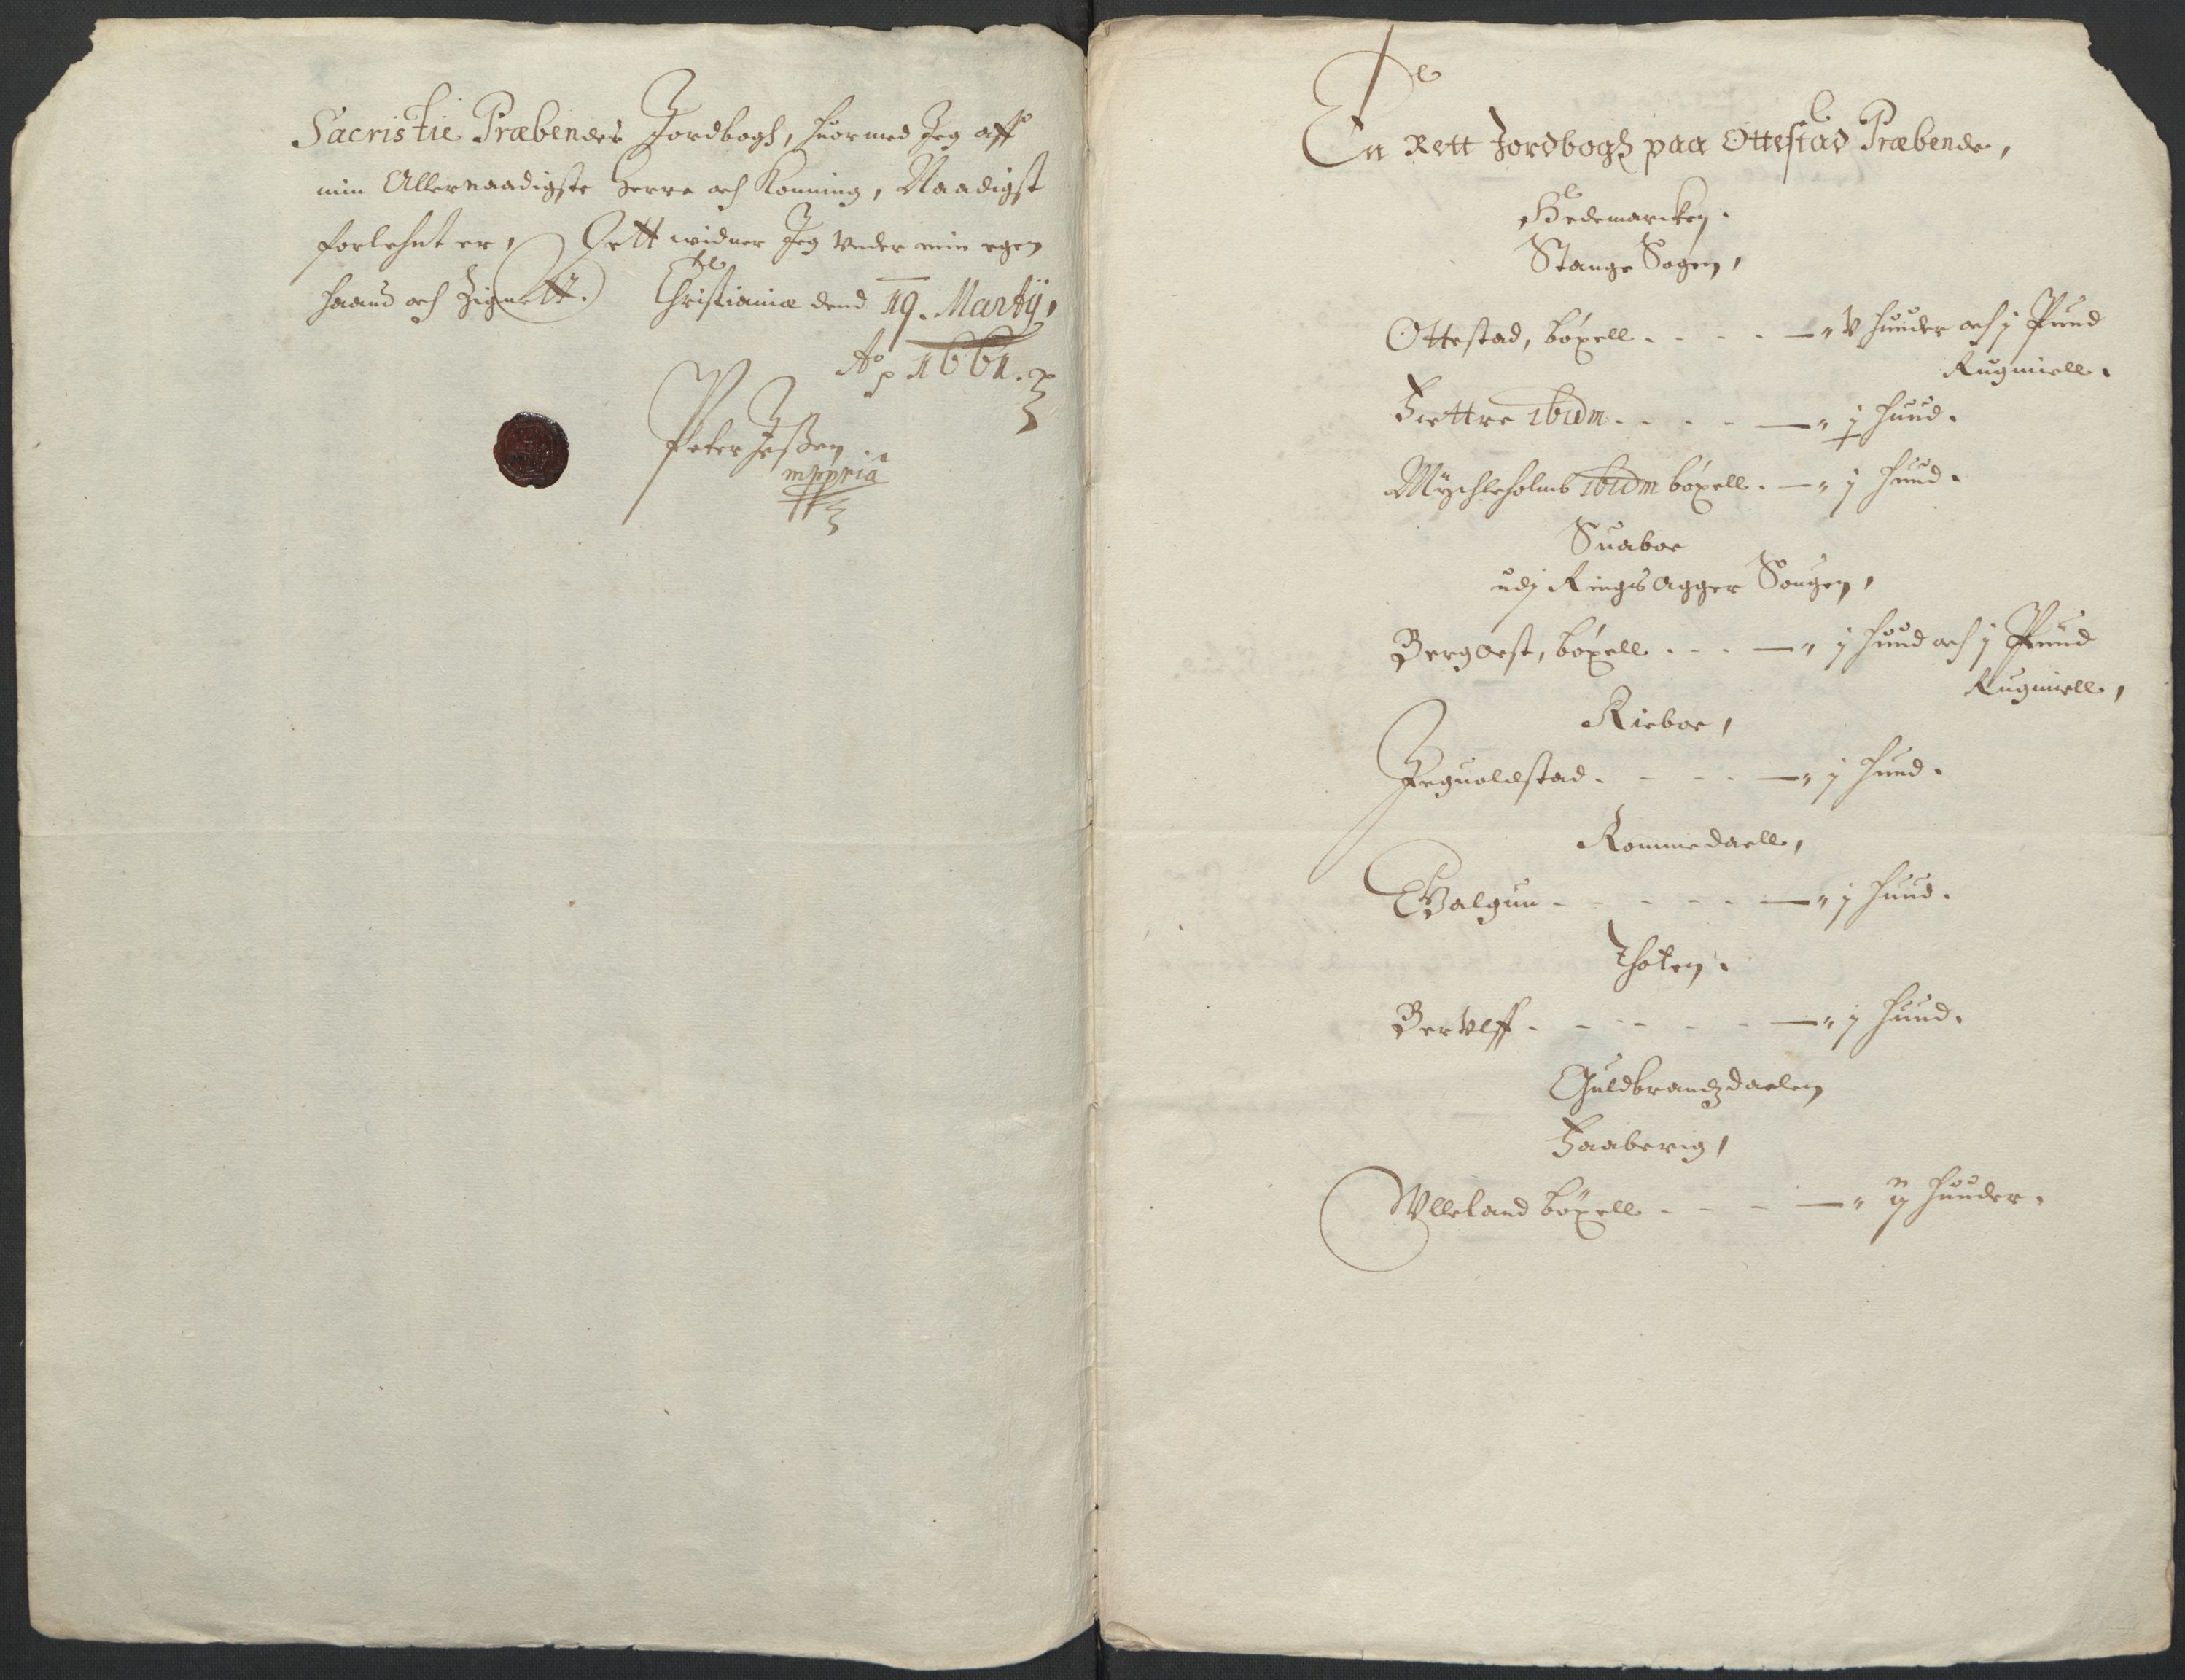 Sacristie Præbendes Jordbogh, huormed Jeg aff
min Allernaadigste Herre och Konning, Naadigst
forlehnt er, Dett widner Jeg vnder min egen
haand och Zignett. Christianiæ dend 19. Martÿ,
Ao 1661.
Peter Jeßen
mppria
En Rett Jordbogh paa Ottestad Præbende,
Hedemarcken.
Stange Sogen,
Ottestad, bøxell - - - - — " V hunder och j Pund
Rugmiell.
Fiettre Ibidm - - - - — " j hund.
Mÿchleholmb Ibidm bøxell. — " j hund.
Suaboe
udj Ringsagger Sougen,
Berg øest, bøxell - - - — " j hund och j Pund
Rugmiell,
Rieboe,
Jegualdstad - - - - — " j hund.
Rommedaell,
Walgun - - - - - — " j hund.
Thoten.
Bervlff - - - - - — " j hund.
Guldbrandzdaelen
Faaberig,
Vlleland bøxell - - - — " ij hunder.